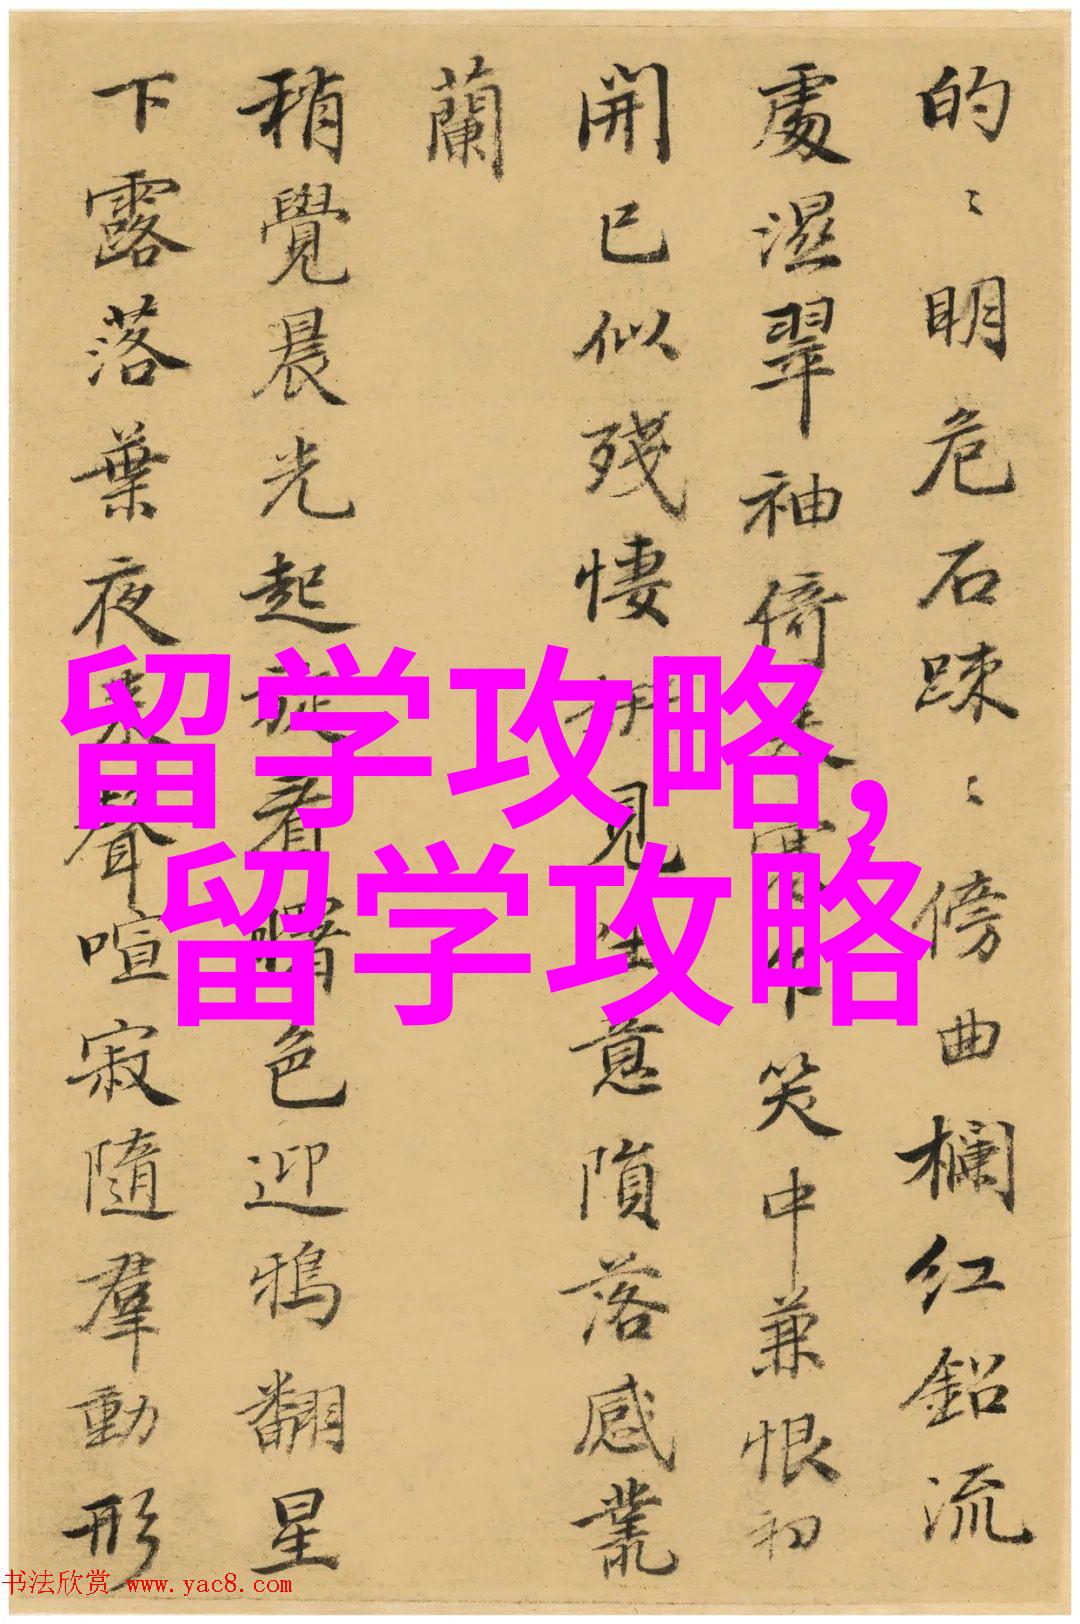 的〻明危石踈〻傍曲欄红鉛流
處濕翠袖倚笑中兼恨初
開已似殘悽見生意隕落感叢
蘭
稍覺晨光起看曙色迎鴉翻星
下露落葉夜聲喧寂隨羣動形
留学攻略,
留学攻略
书法欣赏 www.yac8.com